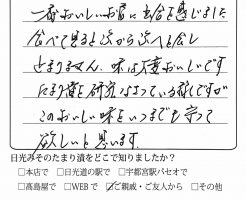 一番おいしいお店に出合を感じました
食べて見ると次から次へと食し
とまりません、味は大変おいしいです
たまり漬を研究なさっている様ですが
このおいしい味をいつまでも守って
欲しいと思います。
日光みそのたまり漬をどこで知りましたか?
□本店で □日光道の駅で □宇都宮駅パセオで
□高島屋で □WEBで ☑ご親戚・ご友人から □その他